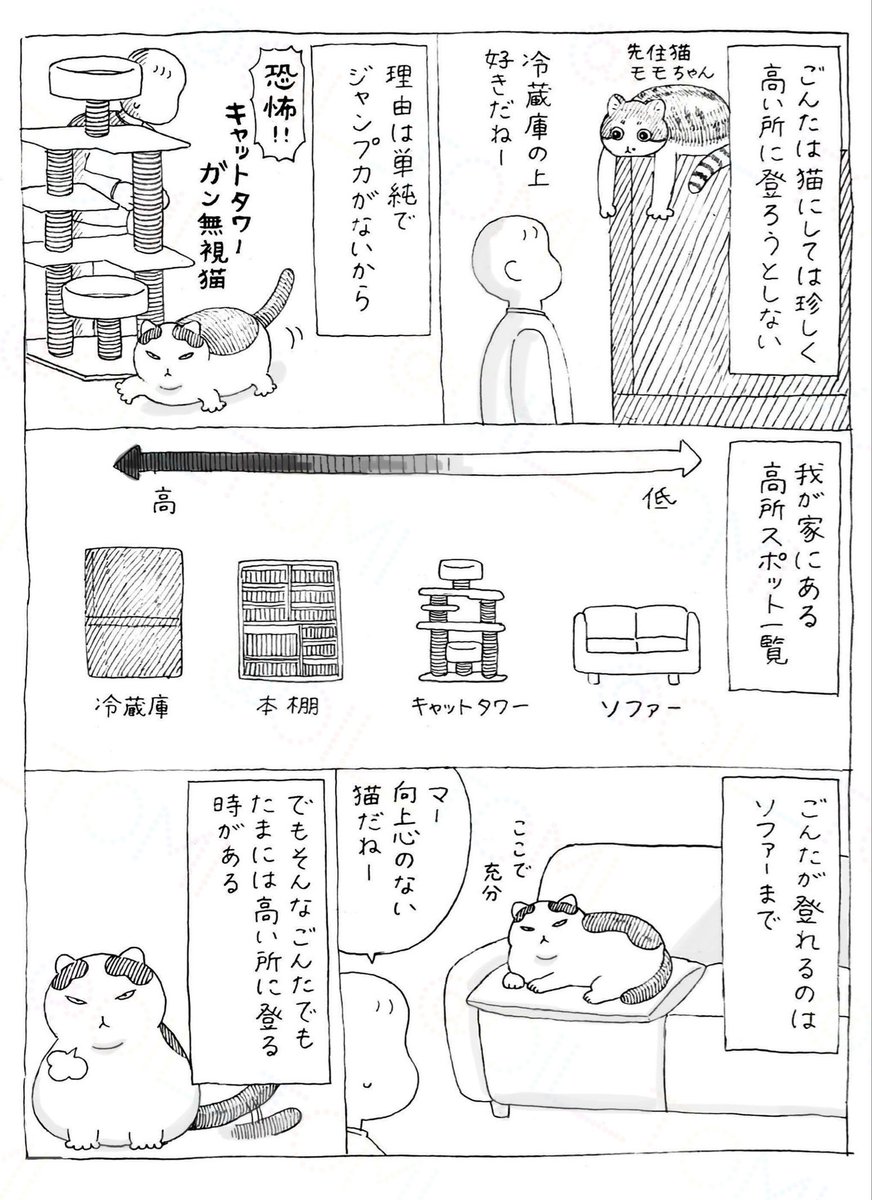 ごんたは猫にしては珍しく
高い所に登ろうとしない
先住猫
モモちゃん
冷蔵庫の上
好きだねー
理由は単純で
ジャンプ力がないから
恐怖!!
キャットタワー
ガン無視猫
我が家にある
高所スポット一覧
高
低
冷蔵庫
本棚
キャットタワー
ソファー
ごんたが登れるのは
ソファーまで
ここで
充分
マー
向上心のない
猫だねー
でもそんなごんたでも
たまには高い所に登る
時がある